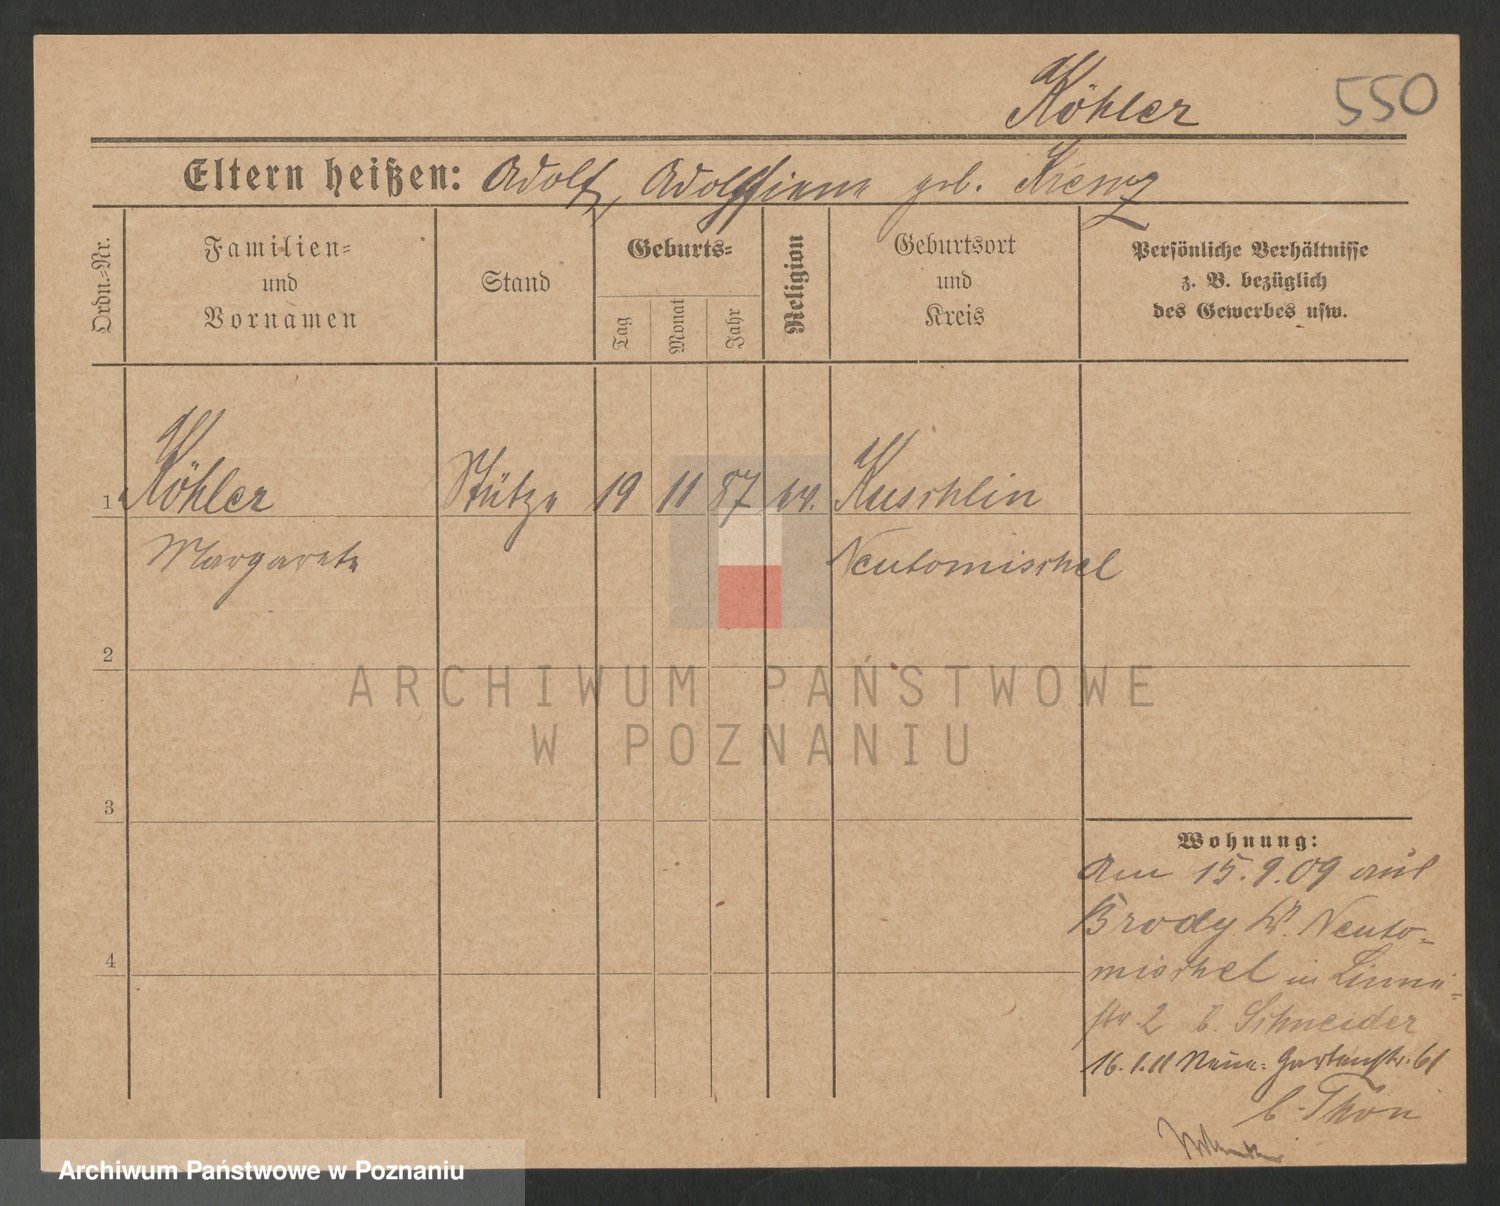 Köhler 550
Eltern heißen: Adolf, Adolfine geb. Krenz
Ordn.-Nr.
Familien-
und
Vornamen
Stand
Geburts-
Tag
Monat
Jahr
Religion
Geburtsort
und
Kreis
Persönliche Verhältnisse
z. B. bezüglich
des Gewerbes usw.
1 Köhler Stütze 19 11 87 ev. Kuschlin
Margarete Neutomischel
2
ARCHIWUM PAŃSTWOWE
W POZNANIU
3
Wohnung:
Am 15.9.09 aus
Brody Kr. Neuto-
mischel in
str. 2 b. Schneider
16.1.11 Neue Gartenstr. 61
b. Thon
4
Archiwum Państwowe w Poznaniu